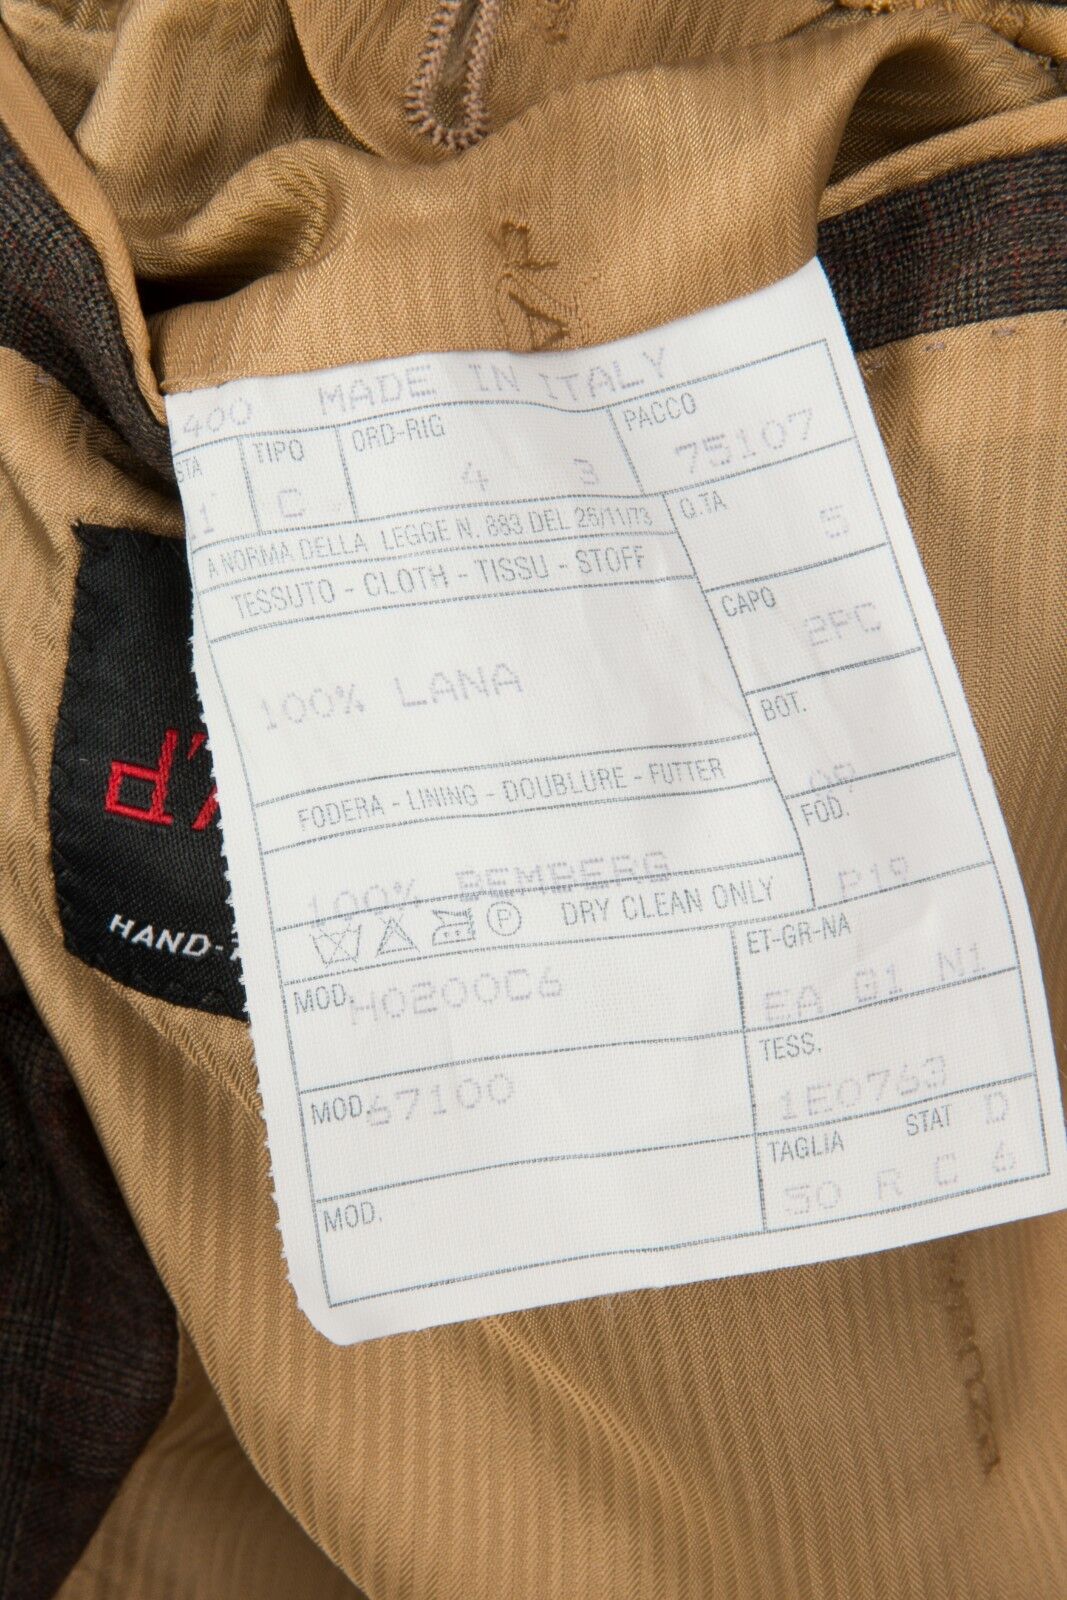 MADE IN ITALY
400
STA TIPO ORD-RIG PACCO
1 C 4 3 75107
A NORMA DELLA LEGGE N. 883 DEL 26/11/73
Q.TA
5
TESSUTO - CLOTH - TISSU - STOFF
CAPO
2PC
100% LANA
BOT.
FODERA - LINING - DOUBLURE - FUTTER
FOD.
P19
100% BEMBERG
P DRY CLEAN ONLY
ET-GR-NA
MOD. H0200C6
EA 01 N1
TESS.
MOD. 67100
1E0763
TAGLIA STAT D
50 R C 6
MOD.
d'
HAND-